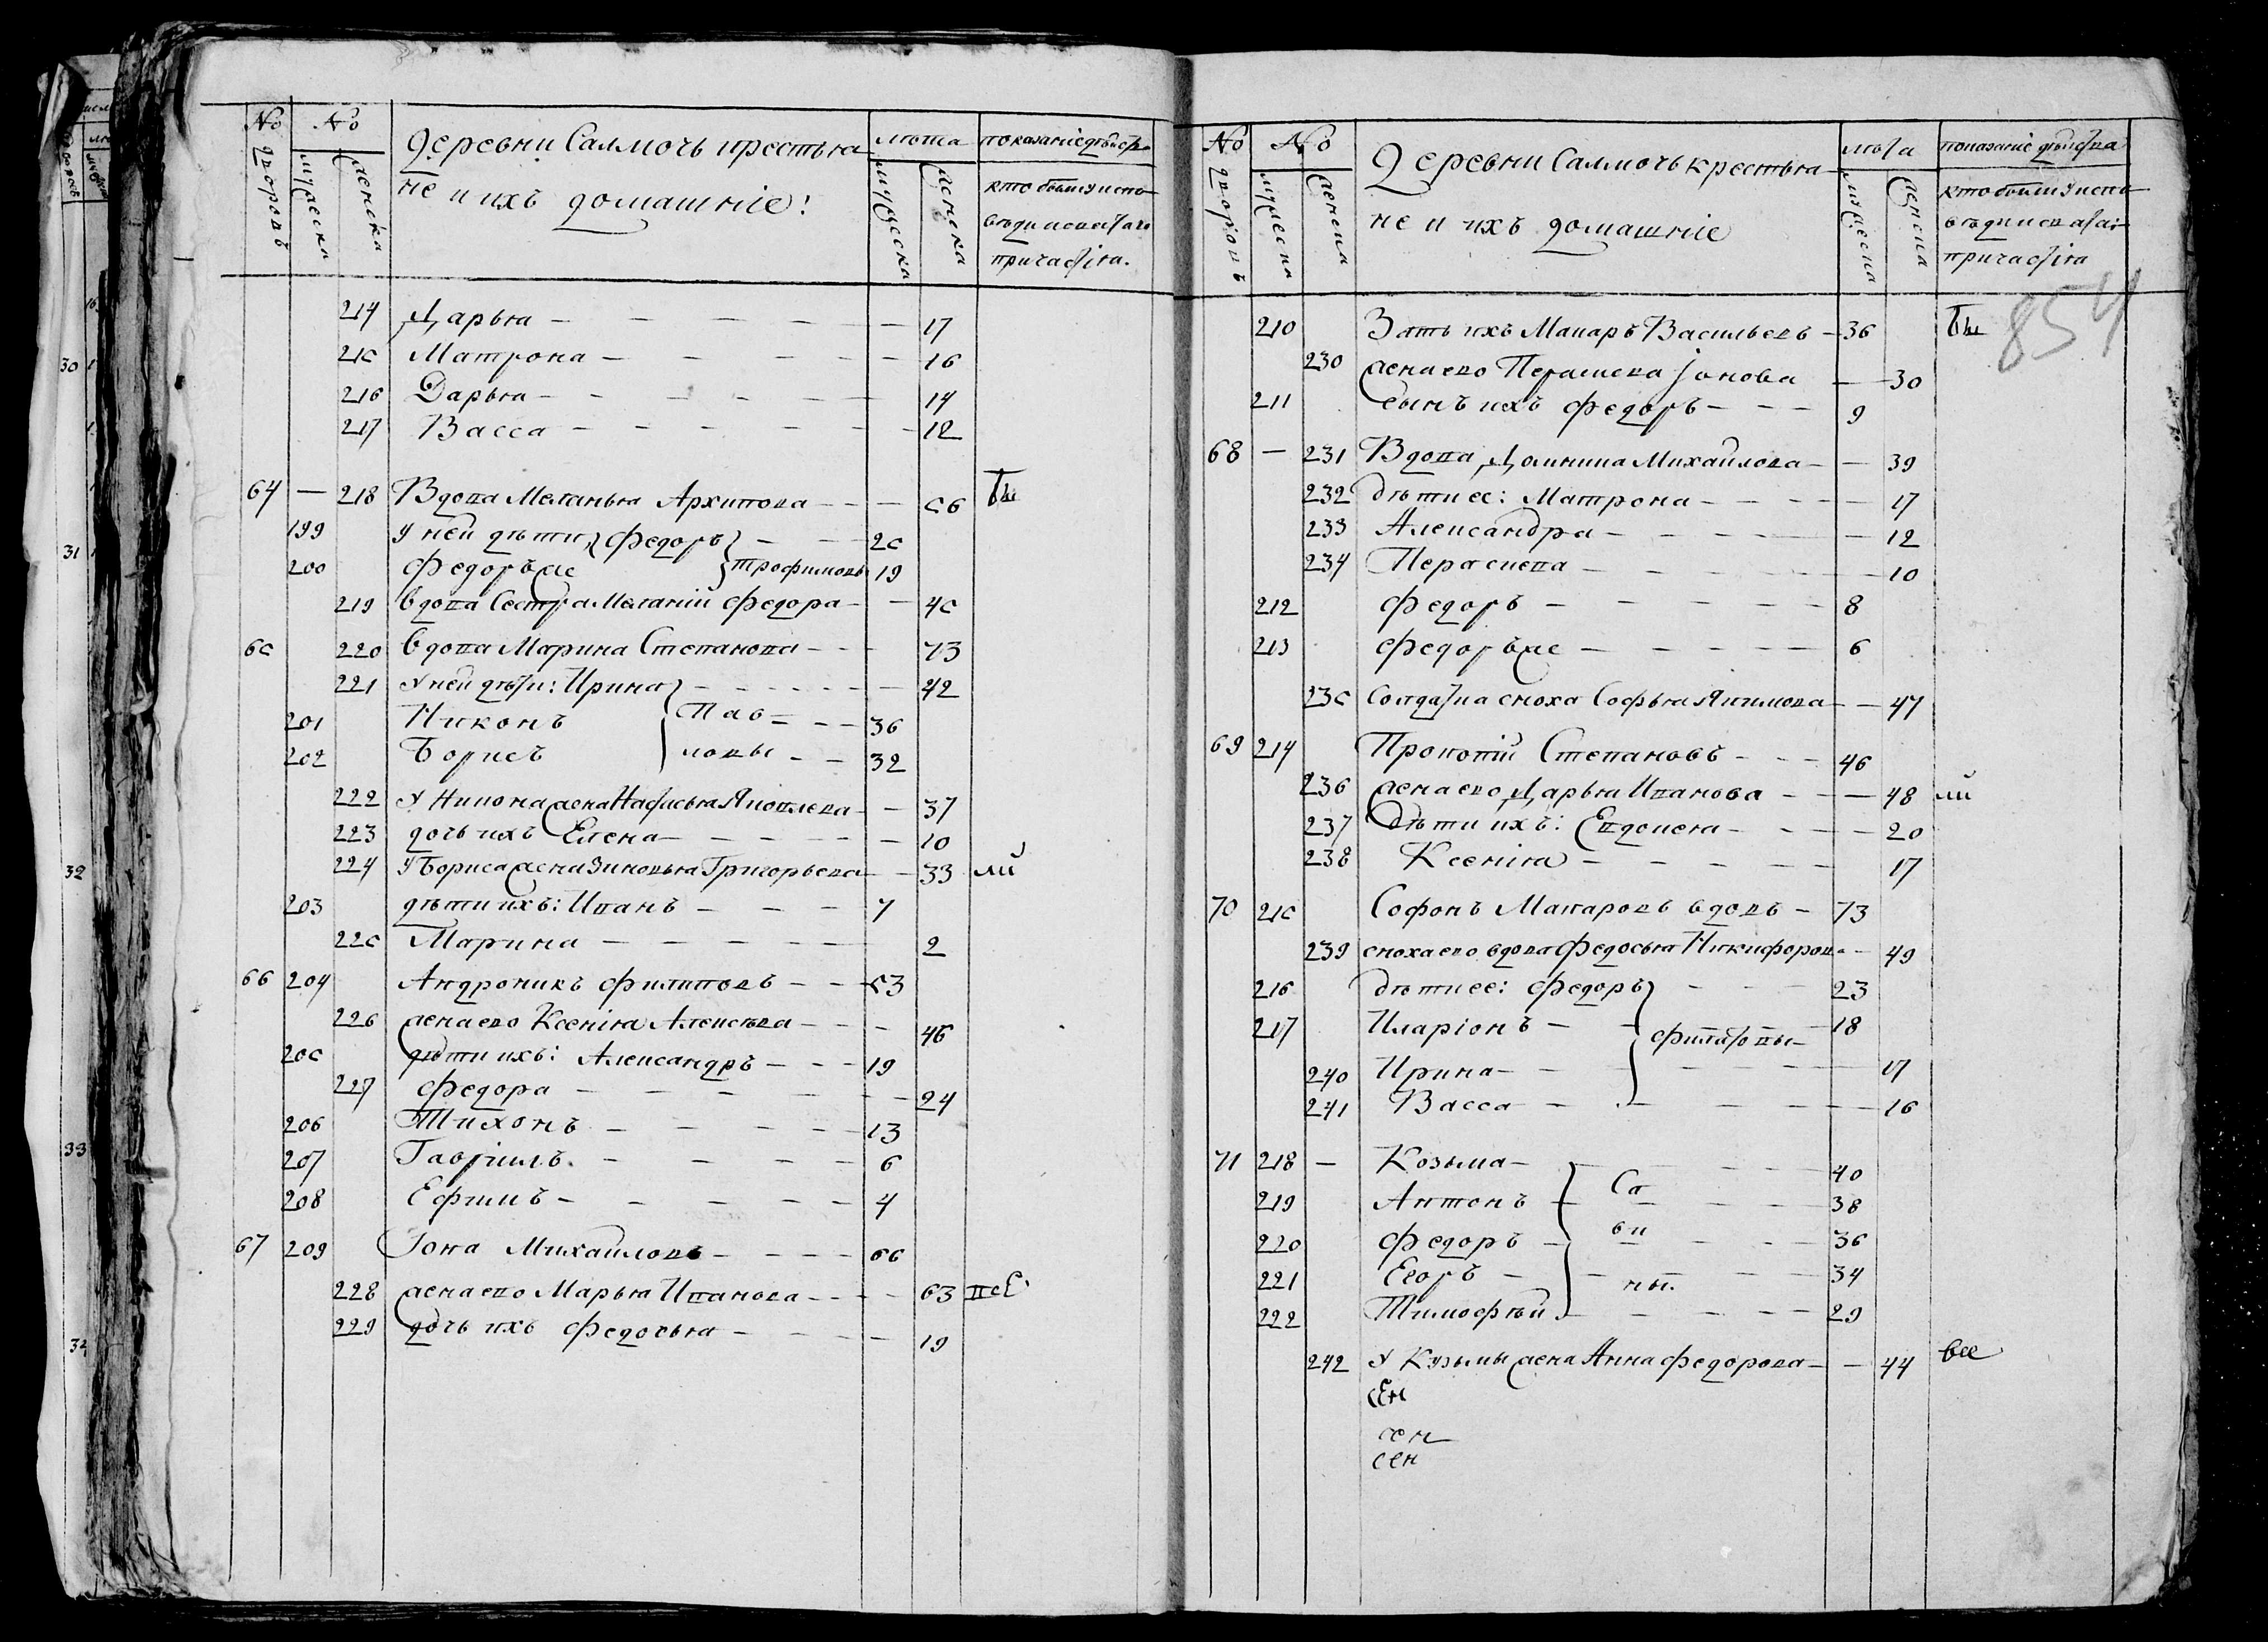 № № Деревни Салмочь крестья лѣта показаніе дѣйства
не и ихъ домашніе:
дворовъ мужеска женска мужеска женска
кто былъ у испо
вѣди и святаго
причастія.
214 Дарья — — — — — 17
215 Матрона — — — — — 16
216 Дарья — — — — — 14
217 Васса — — — — — 12
64 — 218 Вдова Меланья Архипова — — — 56 бы
199 У ней дѣти, Федоръ — — 25
200 Федоръ же Трофимовы 19
219 вдова сестра Меланіи Федора — — 45
65 220 вдова Марина Степанова — — 73
221 У ней дѣти: Ирина — — — — — 42
201 Никонъ Пав — — — 36
202 Борисъ ловы — — 32
222 У Никона жена Нафисья Яковлева — — 37
223 дочь ихъ Елена — — — — — 10
224 У Бориса жена Зиновья Григорьева — — 33 ли
203 дѣти ихъ: Иванъ — — — 7
225 Марина — — — — — 2
66 204 Андроникъ Филиповъ — — 53
226 жена ево Ксенія Алексѣва — — — 46
205 дѣти ихъ: Александръ — — — 19
227 Федора — — — — — — 24
206 Тихонъ — — — — — 13
207 Гавріилъ. — — — — 6
208 Ефимъ — — — — — 4
67 209 Іона Михаиловъ — — — — 66
228 жена ево Марья Иванова — — — — 63 всѣ
229 дочь ихъ Федосья — — — — 19
№ № Деревни Салмочь крестья лѣта показаніе дѣйства
не и ихъ домашніе
дворовъ мужеска женска мужеска женска
кто былъ у испо
вѣди и святаго
причастія
854
210 Зять ихъ Макаръ Васильевъ — 36 бы
230 жена ево Параскева Іонова — — 30
211 сынъ ихъ Федоръ — — — 9
68 — 231 Вдова Домника Михаилова — — 39
232 дѣти ее: Матрона — — — — — 17
233 Александра — — — — — 12
234 Параскева — — — — — 10
212 Федоръ — — — — — 8
213 Федоръ же — — — — — 6
235 Солдатка сноха Софья Якимова — — 47
69 214 Прокопій Степановъ — — — 46
236 жена ево Дарья Иванова — — — 48 ли
237 Дѣти ихъ: Евдокея — — — — 20
238 Ксенія — — — — — 17
70 215 Софонъ Макаровъ вдовъ — 73
239 сноха ево вдова Федосья Никифорова — 49
216 Дѣти ее: Федоръ — — — 23
217 Иларіонъ — — Филатовы — 18
240 Ирина — — — — — — 17
241 Васса — — — — — — 16
71 218 — Козьма — — — — — 40
219 Антонъ — Са — — — 38
220 Федоръ — ви — — — 36
221 Егоръ — — ны. — — 34
222 Тимофѣй. — — — — — 29
242 У Кузьмы жена Анна Федорова — — 44 все
жен
жен
сен